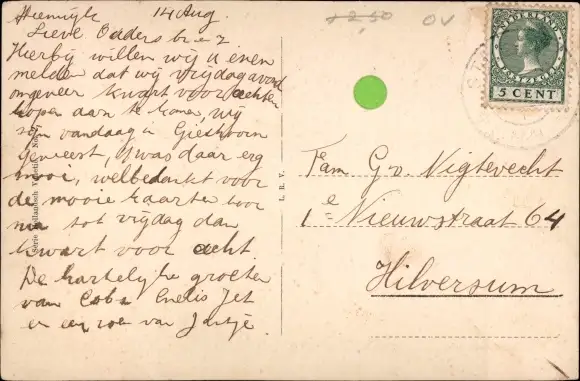 14 Aug.
Lieve Ouders br e z
Hierbij willen wij u even
melden dat wij vrijdagavond
ongeveer kwart voor achten
hopen aan te komen, wij
zijn vandaag in Giethoorn
geweest, 't was daar erg
mooi, welbedankt voor
de mooie kaarten hoor
nu tot vrijdag dan
kwart voor acht.
De hartelijke groeten
van Coba Jet
en een zoen van Jantje.
L. B. V.
OV
NEDERLAND
5 CENT
Fam G. v. Nigtevecht
1e Nieuwstraat 64
Hilversum